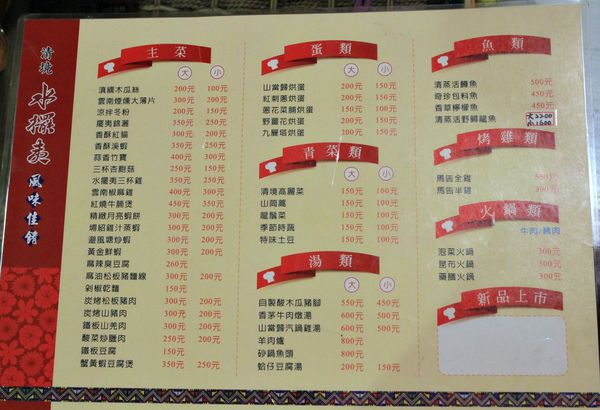 清境
水擺夷
風味佳餚
主菜
大 小
滇緬木瓜絲 200元 100元
雲南煙燻大薄片 300元 200元
涼拌冬粉 200元 150元
擺夷鎮雞 350元 250元
香酥紅腸 300元 200元
香酥溪蝦 350元 250元
蒜香竹寶 400元 300元
三杯杏鮑菇 250元 150元
水擺夷三杯雞 350元 250元
雲南椒麻雞 300元 200元
紅燒牛腩煲 350元 250元
精緻月亮蝦餅 300元 200元
緬紹雞汁蒸蝦 300元 200元
避風塘炒蝦 300元 200元
黃金鮮蝦 300元 200元
麻辣臭豆腐 260元
麻油松板豬麵線 300元 200元
剁椒乾麵 150元
炭烤松板豬肉 300元 200元
炭烤山豬肉 300元 200元
鐵板山羌肉 300元 200元
酸菜炒臘肉 250元 200元
鐵板豆腐 150元
蟹黃蝦豆腐煲 350元 250元
蛋類
大 小
山當歸烘蛋 200元 150元
紅刺蔥烘蛋 200元 150元
蔥花菜脯烘蛋 200元 150元
野薑花烘蛋 200元 150元
九層塔烘蛋 200元 150元
青菜類
大 小
清境高麗菜 150元 100元
山茼蒿 150元 100元
龍鬚菜 150元 100元
季節時蔬 150元 100元
特味土豆 150元 100元
湯類
大 小
自製酸木瓜豬腳 550元 450元
香茅牛肉燉湯 600元 500元
山當歸汽鍋雞湯 600元 500元
羊肉爐 800元
砂鍋魚頭 800元
蛤仔豆腐湯 200元 150元
魚類
清蒸活鱒魚 500元
奇珍包料魚 450元
香草檸檬魚 450元
清蒸活野鱘龍魚 大2200
小1600
烤雞類
馬告全雞 500元
馬告半雞 300元
火鍋類
牛肉/豬肉
泡菜火鍋 300元
昆布火鍋 300元
藥膳火鍋 300元
新品上市